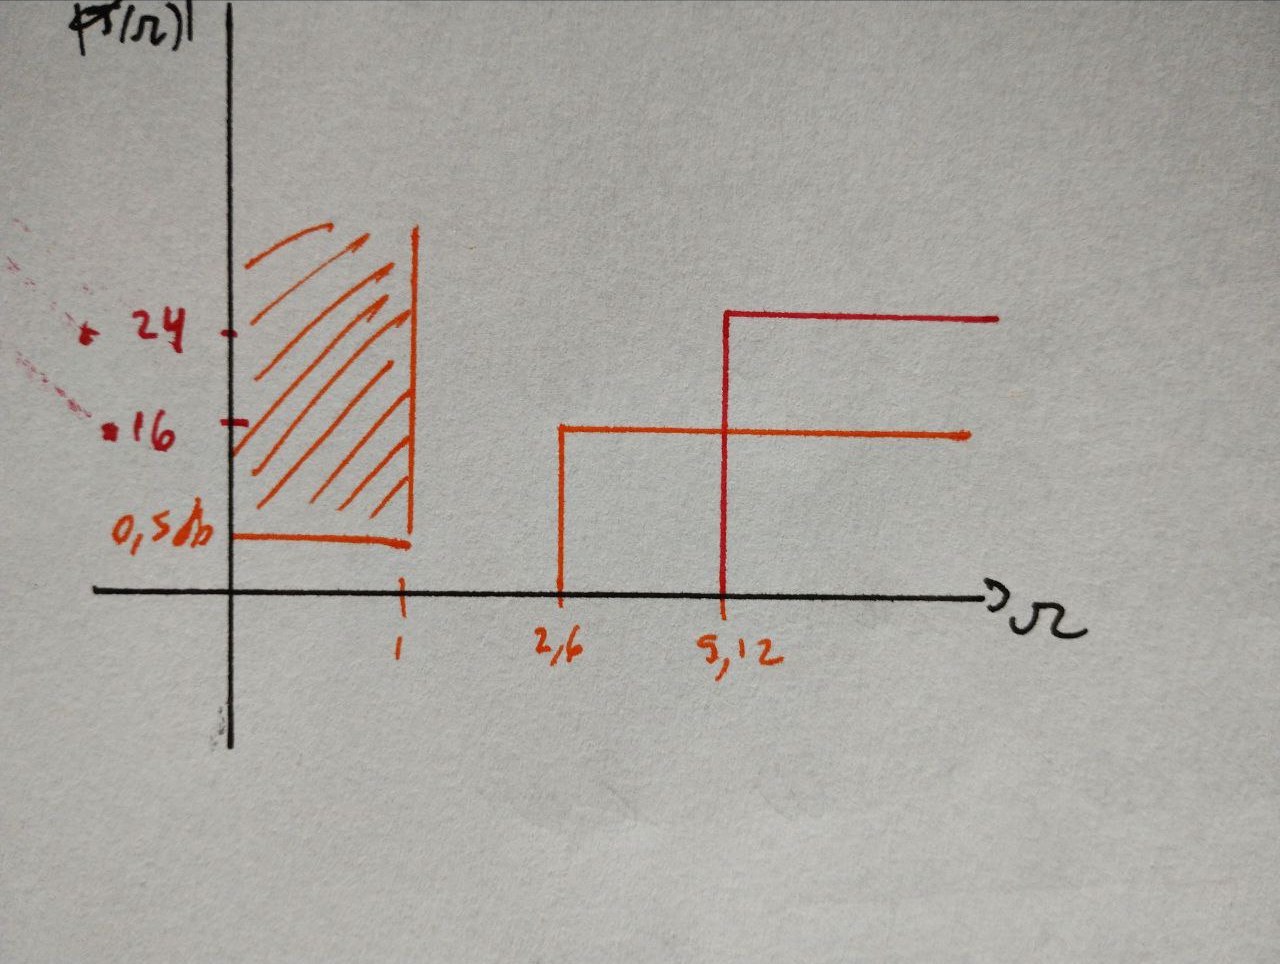 |T(Ω)|
24
16
0,5db
1
2,6
5,12
Ω